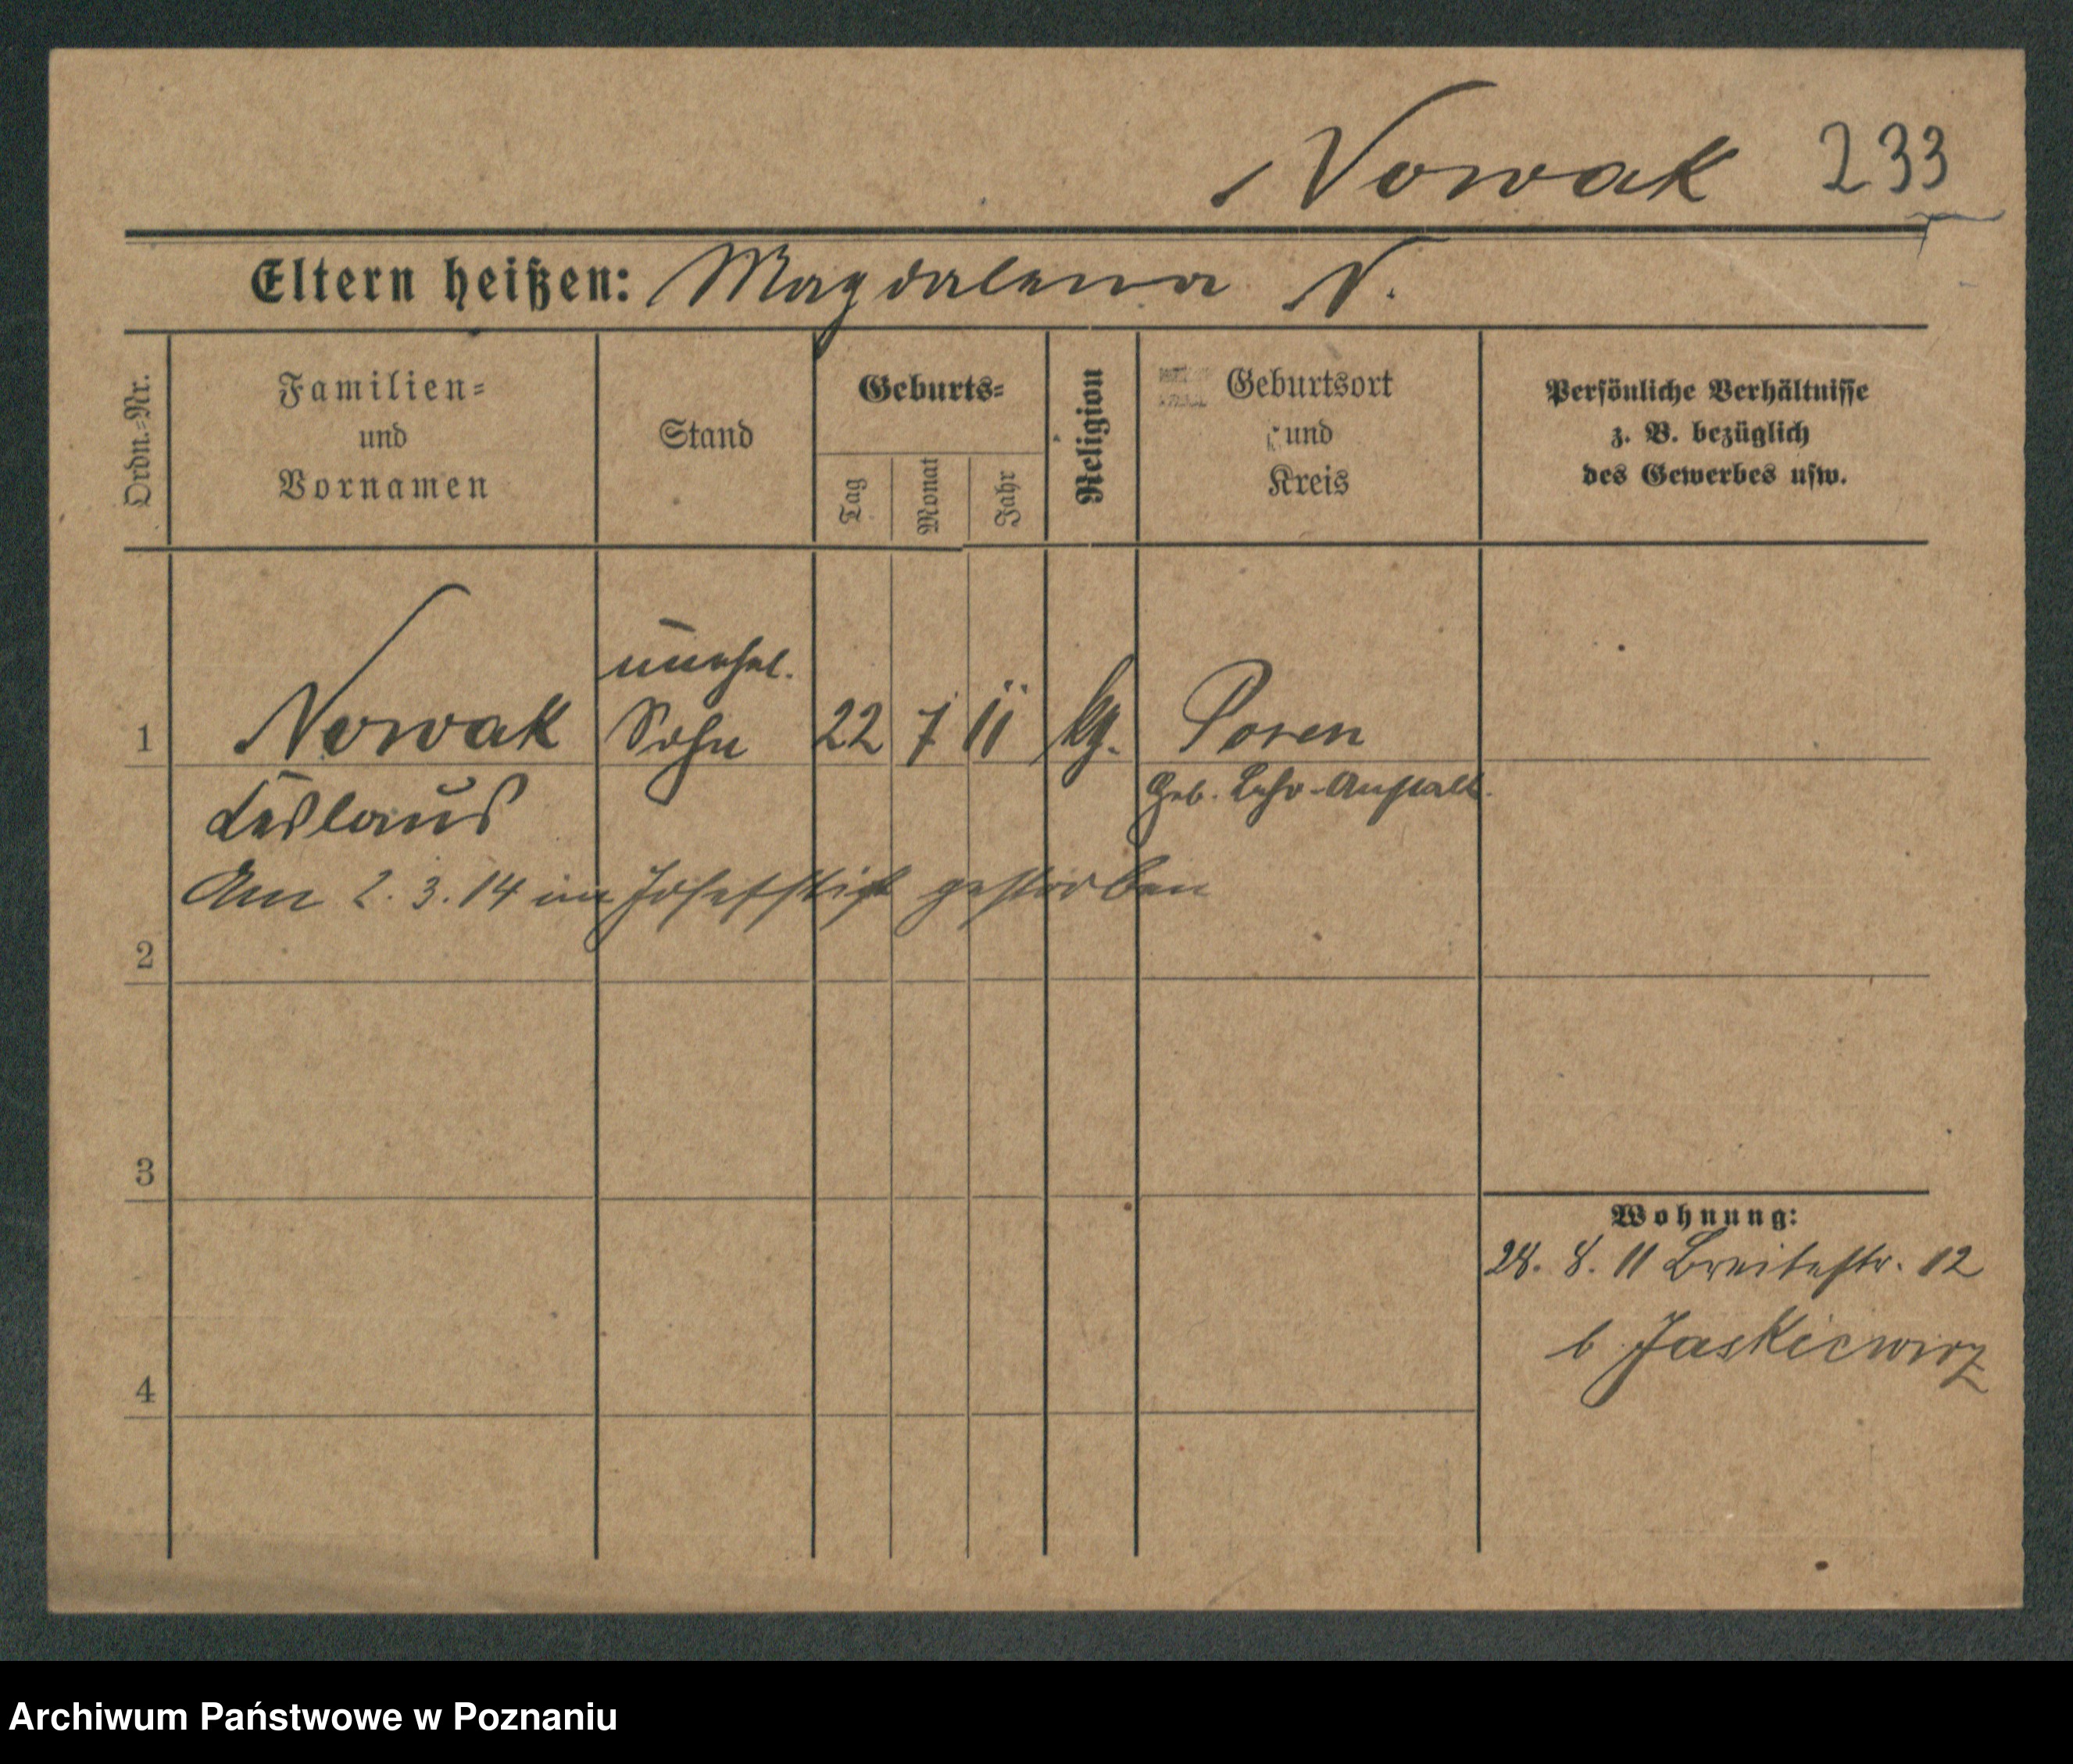 Nowak 233
Eltern heißen: Magdalena N.
Ordn.-Nr.
Familien-
und
Vornamen
Stand
Geburts-
Tag
Monat
Jahr
Religion
Geburtsort
und
Kreis
Persönliche Verhältnisse
z. B. bezüglich
des Gewerbes usw.
unehel.
1 Nowak Sohn 22 7 11 kg. Posen
Geb. Lehr-Anstalt.
Am 2. 3. 14 im Josefstift gestorben
2
3
Wohnung:
28. 8. 11 Breitestr. 12
b. Jaskiewicz
4
Archiwum Państwowe w Poznaniu